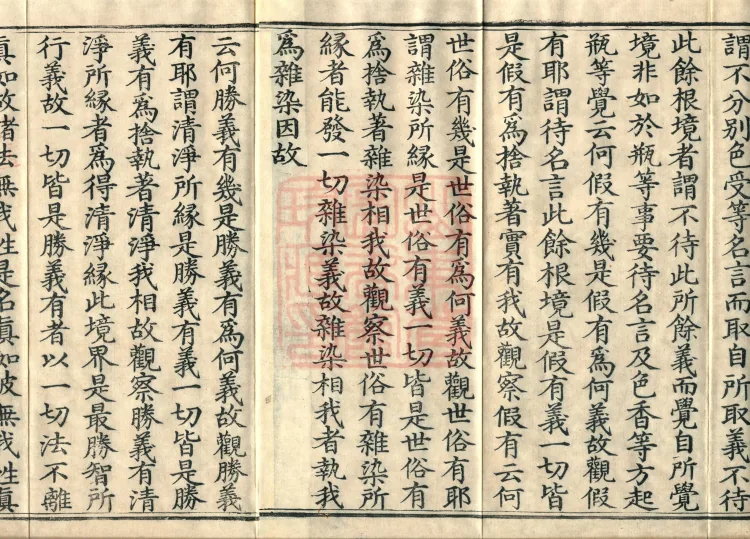 謂不分別色受等名言而取自所取義不待
此餘根境者謂不待此所餘義而覺自所覺
境非如於瓶等事要待名言及色香等方起
瓶等覺云何假有幾是假有爲何義故觀假
有耶謂待名言此餘根境是假有義一切皆
是假有爲捨執著實有我故觀察假有云何
世俗有幾是世俗有爲何義故觀世俗有耶
謂雜染所緣是世俗有義一切皆是世俗有
爲捨執著雜染相我故觀察世俗有雜染所
緣者能發一切雜染義故雜染相我者執我
爲雜染因故
云何勝義有幾是勝義有爲何義故觀勝義
有耶謂清淨所緣是勝義有義一切皆是勝
義有爲捨執著清淨我相故觀察勝義有清
淨所緣者爲得清淨緣此境界是最勝智所
行義故一切皆是勝義有者以一切法不離
眞如故諸法無我性是名眞如彼無我性眞